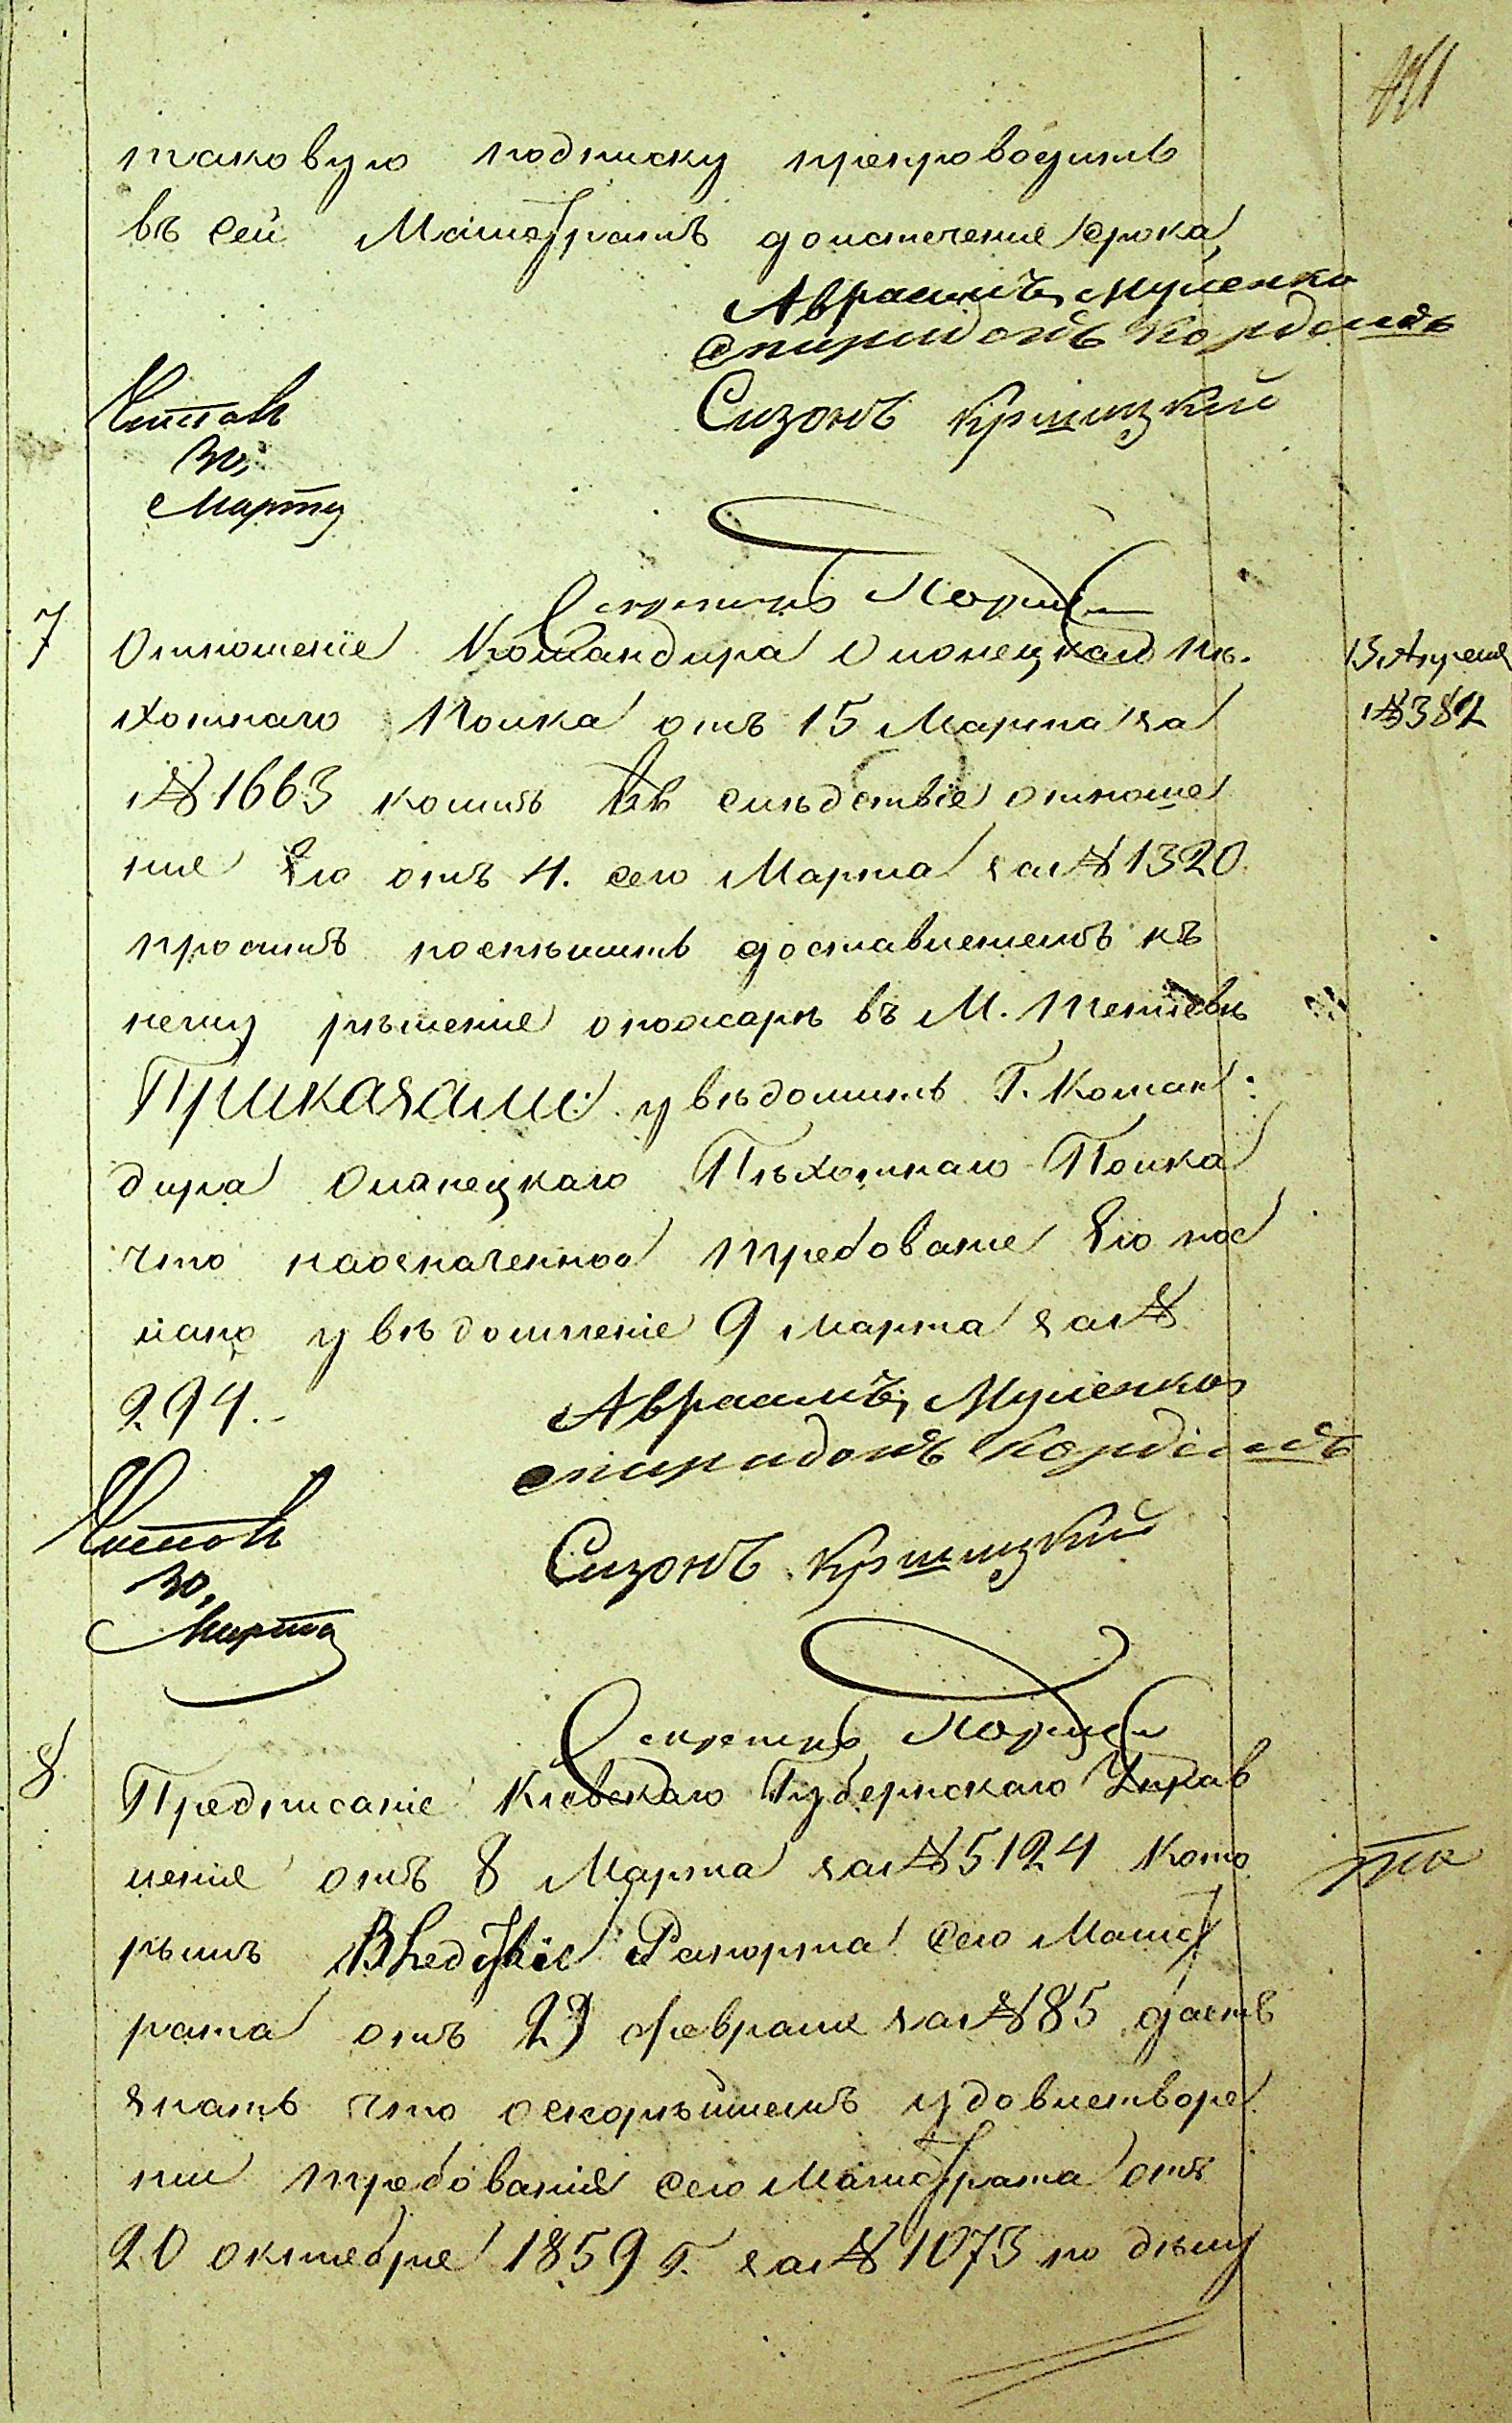 таковую подписку препроводить
въ сей Магистратъ до истечение срока
Авраамъ Мусіенко
Спиридонъ
Сизонъ Крицкий
Читалъ
30
Марта
Секретарь
7
Отношеніе Командира Олонецкаго Пѣ-
хотнаго Полка отъ 15 Марта за
13 Апреля
№ 382
№ 1663 коимъ въ слѣдствіе отноше
ние Его отъ 4. сего Марта за № 1320
проситъ поспѣшить доставлениемъ къ
нему рѣшение о пожарѣ въ М.
Приказали: увѣдомить Г. Коман:
дира Олонецкаго Пѣхотнаго Полка
что наозначенное требование Его пос
лано увѣдомление 9 марта за №
294.
Авраамъ Мусіенко
Спиридонъ
Сизонъ Крицкий
Читалъ
30,
Марта
Секретарь
8
Предписаніе Киевскаго Губернскаго Управ
ление отъ 8 Марта за № 5124 Кото
рымъ Вследствіе Рапорта Сего Магист
рата отъ 23 февраля за № 185 даетъ
знать что о скорѣйшемъ удовлетворе
нии требования сего Магистрата отъ
20 октября 1859 Г. за № 1073 по дѣлу